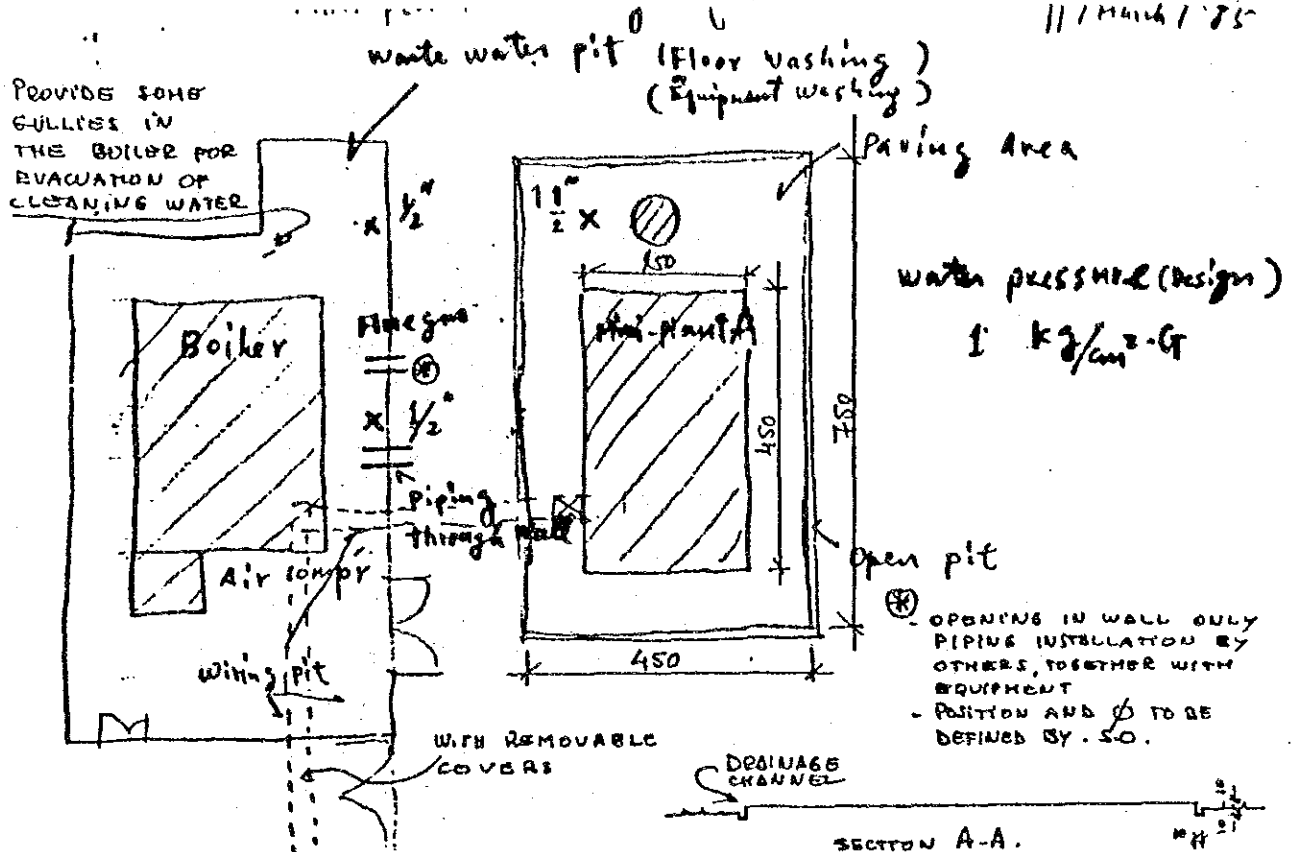 11 / March / '85
waste water pit (Floor washing)
(Equipment washing)
PROVIDE SOME
GULLIES IN
THE BOILER FOR
EVACUATION OF
CLEANING WATER
Paving area
x 1/2"
1 1/2" x
150
water pressure (Design)
1 kg/cm²·G
Boiler
Flue gas
mini-plant A
x 1/2"
450
750
piping
through wall
Air compr
open pit
- OPENING IN WALL ONLY
PIPING INSTALLATION BY
OTHERS, TOGETHER WITH
EQUIPMENT
- POSITION AND Ø TO BE
DEFINED BY S.O.
450
wiring pit
WITH REMOVABLE
COVERS
DRAINAGE
CHANNEL
SECTION A-A.